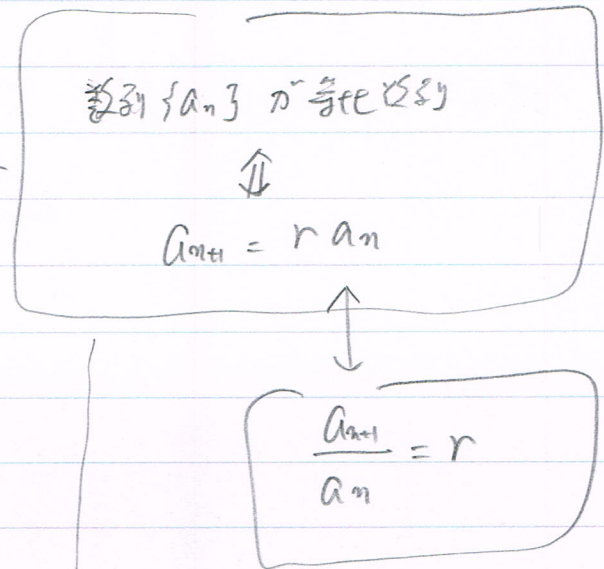 数列{aₙ}が等比数列
⇕
aₙ₊₁ = r aₙ
↕
aₙ₊₁/aₙ = r